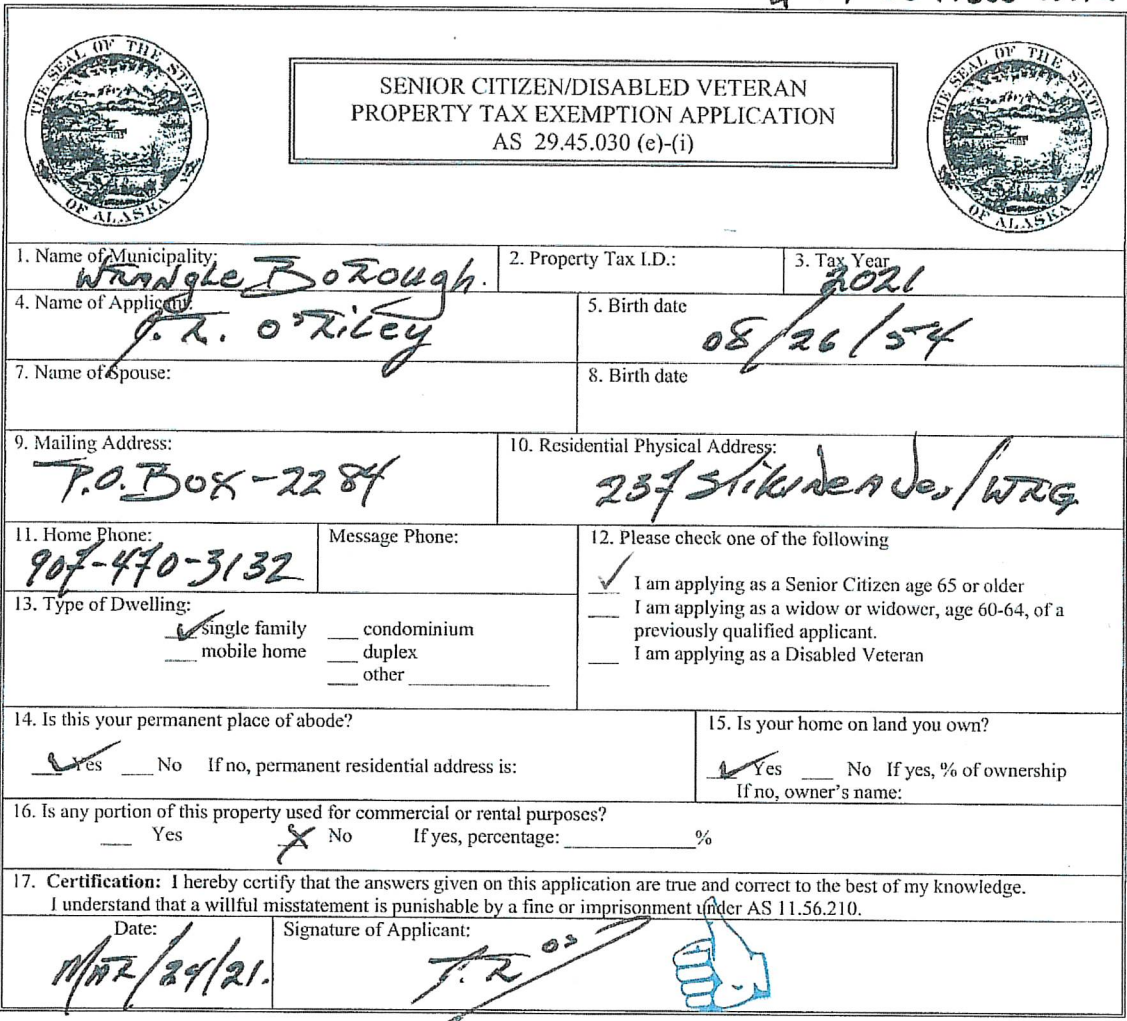 THE SEAL OF THE STATE OF ALASKA
SENIOR CITIZEN/DISABLED VETERAN
PROPERTY TAX EXEMPTION APPLICATION
AS 29.45.030 (e)-(i)
THE SEAL OF THE STATE OF ALASKA
1. Name of Municipality: WRANGLE BOROUGH.
2. Property Tax I.D.:
3. Tax Year 2021
4. Name of Applicant J.R. O'RILEY
5. Birth date 08/26/54
7. Name of Spouse:
8. Birth date
9. Mailing Address:
P.O. BOX-2284
10. Residential Physical Address:
237 / WRG
11. Home Phone:
907-470-3132
Message Phone:
12. Please check one of the following
✓ I am applying as a Senior Citizen age 65 or older
___ I am applying as a widow or widower, age 60-64, of a
previously qualified applicant.
___ I am applying as a Disabled Veteran
13. Type of Dwelling:
✓ single family ___ condominium
___ mobile home ___ duplex
___ other ___
14. Is this your permanent place of abode?
✓ Yes ___ No If no, permanent residential address is:
15. Is your home on land you own?
✓ Yes ___ No If yes, % of ownership
If no, owner's name:
16. Is any portion of this property used for commercial or rental purposes?
___ Yes X No If yes, percentage: ___%
17. Certification: I hereby certify that the answers given on this application are true and correct to the best of my knowledge.
I understand that a willful misstatement is punishable by a fine or imprisonment under AS 11.56.210.
Date:
MAR/24/21.
Signature of Applicant:
J.R OS